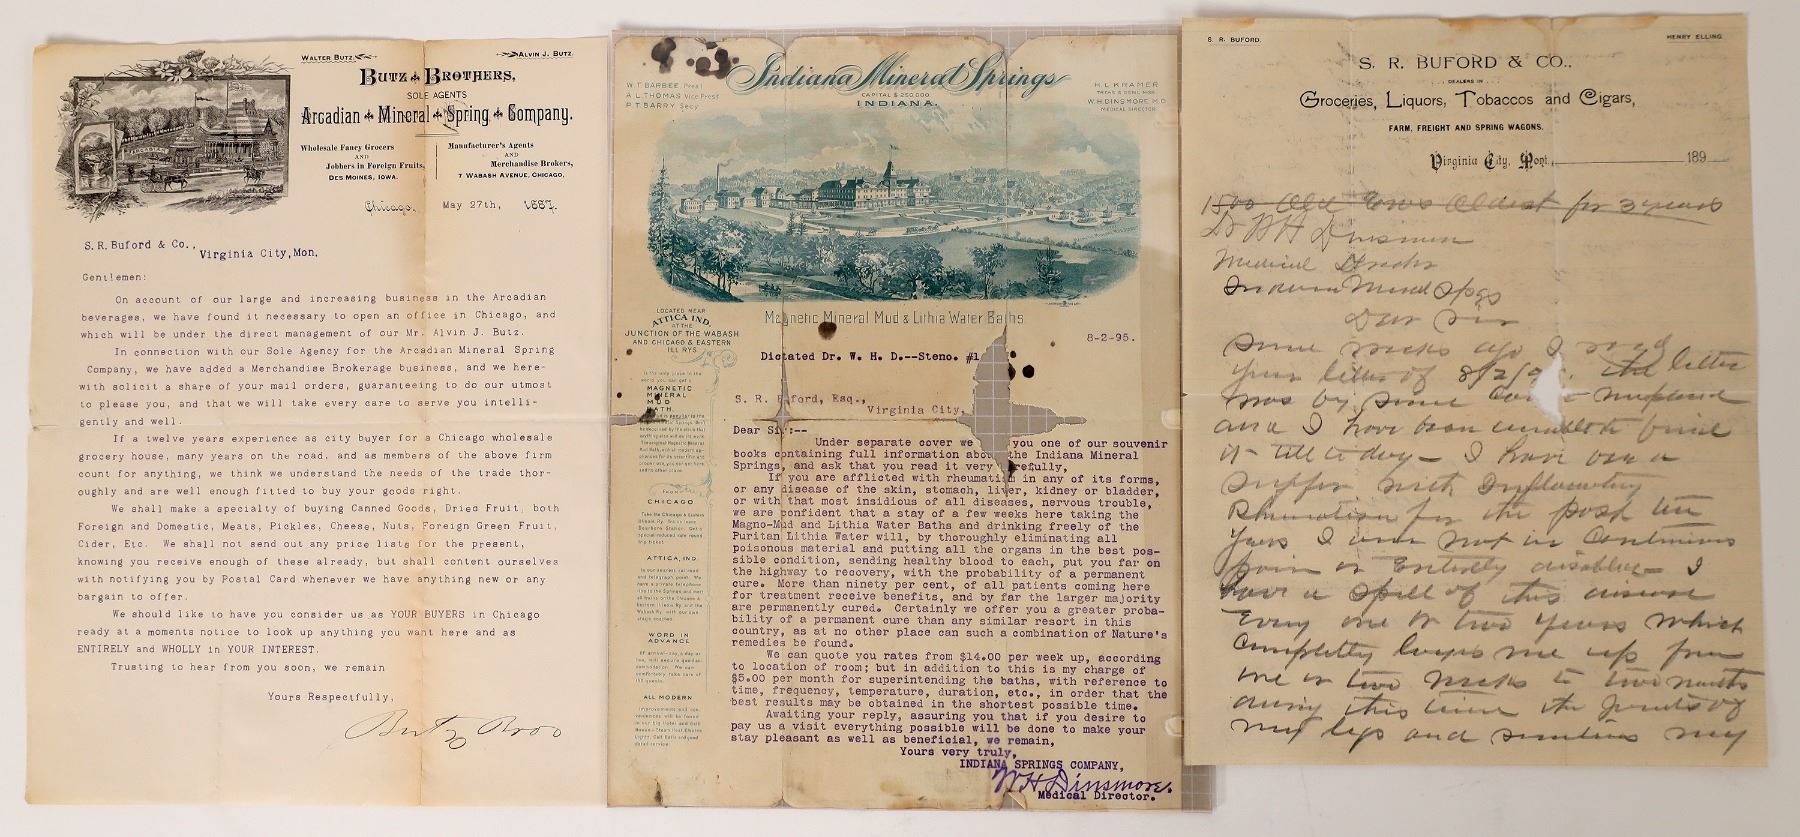 WALTER BUTZ.
ALVIN J. BUTZ.
BUTZ BROTHERS,
SOLE AGENTS
Arcadian Mineral Spring Company.
Wholesale Fancy Grocers
AND
Jobbers in Foreign Fruits,
DES MOINES, IOWA.
Manufacturer's Agents
AND
Merchandise Brokers,
7 WABASH AVENUE, CHICAGO.
ARCADIAN
Chicago, May 27th, 1887.
S.R.Buford & Co.,
Virginia City,Mon.
Gentlemen:
On account of our large and increasing business in the Arcadian
beverages, we have found it necessary to open an office in Chicago, and
which will be under the direct management of our Mr. Alvin J. Butz.
In connection with our Sole Agency for the Arcadian Mineral Spring
Company, we have added a Merchandise Brokerage business, and we here-
with solicit a share of your mail orders, guaranteeing to do our utmost
to please you, and that we will take every care to serve you intelli-
gently and well.
If a twelve years experience as city buyer for a Chicago wholesale
grocery house, many years on the road, and as members of the above firm
count for anything, we think we understand the needs of the trade thor-
oughly and are well enough fitted to buy your goods right.
We shall make a specialty of buying Canned Goods, Dried Fruit, both
Foreign and Domestic, Meats, Pickles, Cheese, Nuts, Foreign Green Fruit,
Cider, Etc. We shall not send out any price lists for the present,
knowing you receive enough of these already, but shall content ourselves
with notifying you by Postal Card whenever we have anything new or any
bargain to offer.
We should like to have you consider us as YOUR BUYERS in Chicago
ready at a moments notice to look up anything you want here and as
ENTIRELY and WHOLLY in YOUR INTEREST.
Trusting to hear from you soon, we remain
Yours Respectfully,
Butz Bros
Indiana Mineral Springs
CAPITAL $250,000
INDIANA.
W.T. BARBEE Pres't
A.L. THOMAS Vice Prest
P.T. BARRY Secy
H.L. KRAMER
TREAS & GENL MGR
W.H. DINSMORE, M.D.
MEDICAL DIRECTOR
LOCATED NEAR
ATTICA IND.
AT THE
JUNCTION OF THE WABASH
AND CHICAGO & EASTERN
ILL RYS
Magnetic Mineral Mud & Lithia Water Baths
8-2-95.
Dictated Dr. W. H. D.--Steno. #1
MAGNETIC
MINERAL
MUD
BATH.
CHICAGO
ATTICA, IND.
WORD IN
ADVANCE
ALL MODERN
S. R. Buford, Esq.,
Virginia City,
Dear Sir:--
Under separate cover we you one of our souvenir
books containing full information about the Indiana Mineral
Springs, and ask that you read it very carefully,
If you are afflicted with rheumatism in any of its forms,
or any disease of the skin, stomach, liver, kidney or bladder,
or with that most insidious of all diseases, nervous trouble,
we are confident that a stay of a few weeks here taking the
Magno-Mud and Lithia Water Baths and drinking freely of the
Puritan Lithia Water will, by thoroughly eliminating all
poisonous material and putting all the organs in the best pos-
sible condition, sending healthy blood to each, put you far on
the highway to recovery, with the probability of a permanent
cure. More than ninety per cent, of all patients coming here
for treatment receive benefits, and by far the larger majority
are permanently cured. Certainly we offer you a greater proba-
bility of a permanent cure than any similar resort in this
country, as at no other place can such a combination of Nature's
remedies be found.
We can quote you rates from $14.00 per week up, according
to location of room; but in addition to this is my charge of
$5.00 per month for superintending the baths, with reference to
time, frequency, temperature, duration, etc., in order that the
best results may be obtained in the shortest possible time.
Awaiting your reply, assuring you that if you desire to
pay us a visit everything possible will be done to make your
stay pleasant as well as beneficial, we remain,
Yours very truly,
INDIANA SPRINGS COMPANY,
W H Dinsmore.
Medical Director.
S. R. BUFORD.
HENRY ELLING.
S. R. BUFORD & CO.,
DEALERS IN
Groceries, Liquors, Tobaccos and Cigars,
FARM, FREIGHT AND SPRING WAGONS.
Virginia City, Mont., 189
1500 Old Ewes Oldest for 3 years
Dr W H Dinsmore
Medical
Indiana Mineral Spgs
Dear Sir
Some weeks ago I recd
your letter of 8/2/95. the letter
was by some misplaced
and I have been unable to find
it till to day - I have been a
suffer with Inflamatory
Rhumatism for the past ten
years I am not in continuous
pain or Entirely disabled - I
have a spell of this disease
Every one or two years which
completely lays me up from
one or two weeks to two months
during this time the joints of
my legs and sometimes my